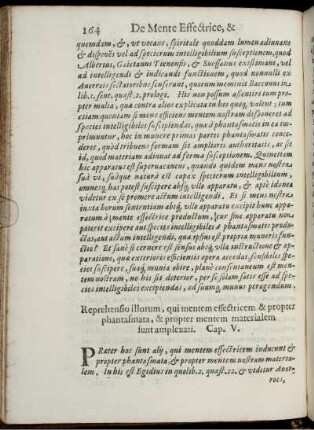 164 De Mente Effectrice, &
quemdam, &, ut vocant, spiritale quoddam lumen adiuuans
& disponẽs vel ad specierum intelligibilium susceptionem, quod
Albertus, Gaietanus Tienensis, & Suessanus existimant, vel
ad intelligendi & indicandi functionem, quod nonnulli ex
Auerrois sectatoribus senserunt, quorum meminit Bacconus in
lib. 1. sent. quæst. 2. prologi. Sed non possum assentire cum prop-
ter multa, quæ contra alios explicata in hos quoq; valent; tum
etiam quoniam si mens efficiens mentem nostram disponeret ad
species intelligibiles suscipiendas, quæ à phantasmatis in ea im-
primuntur, hoc in munere primas partes phantasmatis conce-
deret, quòd tribuens formam sit amplioris authoritatis, ac sit
id, quod materiam adiuuat ad formæ susceptionem. Quinetiam
hic apparatus est superuacaneus, quando quidem mens nostra
sua vi, suaque natura est capax specierum intelligibilium,
omnesq; has potest suscipere absq; vllo apparatu, & aptè idonea
videtur ex se promere actum intelligendi. Et si mens nostra
iuxta horum sententiam absq; vllo apparatu excipit hunc appa-
ratum à mente effectrice productum, cur sine apparatu non
poterit excipere aut species intelligibiles à phantasmate produ-
ctas, aut actum intelligendi, qui ipsius est propria muneris fun-
ctio? Et sanè si cernere est sensus absq; vlla instructione & ap-
paratione, quæ exterioris efficientis opera accedat, sensibiles spe-
cies suscipere, suaq; munia obire, planè consentaneum est men-
tem nostram, ne his sit deterior, per se solam satis esse ad spe-
cies intelligibiles excipiendas, ad suumq; munus peragendum.
Reprehensio illorum, qui mentem effectricem & propter
phantasmata, & propter mentem materialem
sunt amplexati. Cap. V.
PRæter hos sunt alij, qui mentem effectricem inducunt &
propter phantasmata, & propter mentem nostram materia-
lem. In his est Egidius in quolib. 2. quæst. 22. & videtur Auer-
roes,